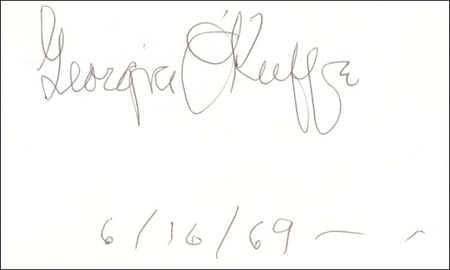 Georgia O'Keeffe
6/16/69 —